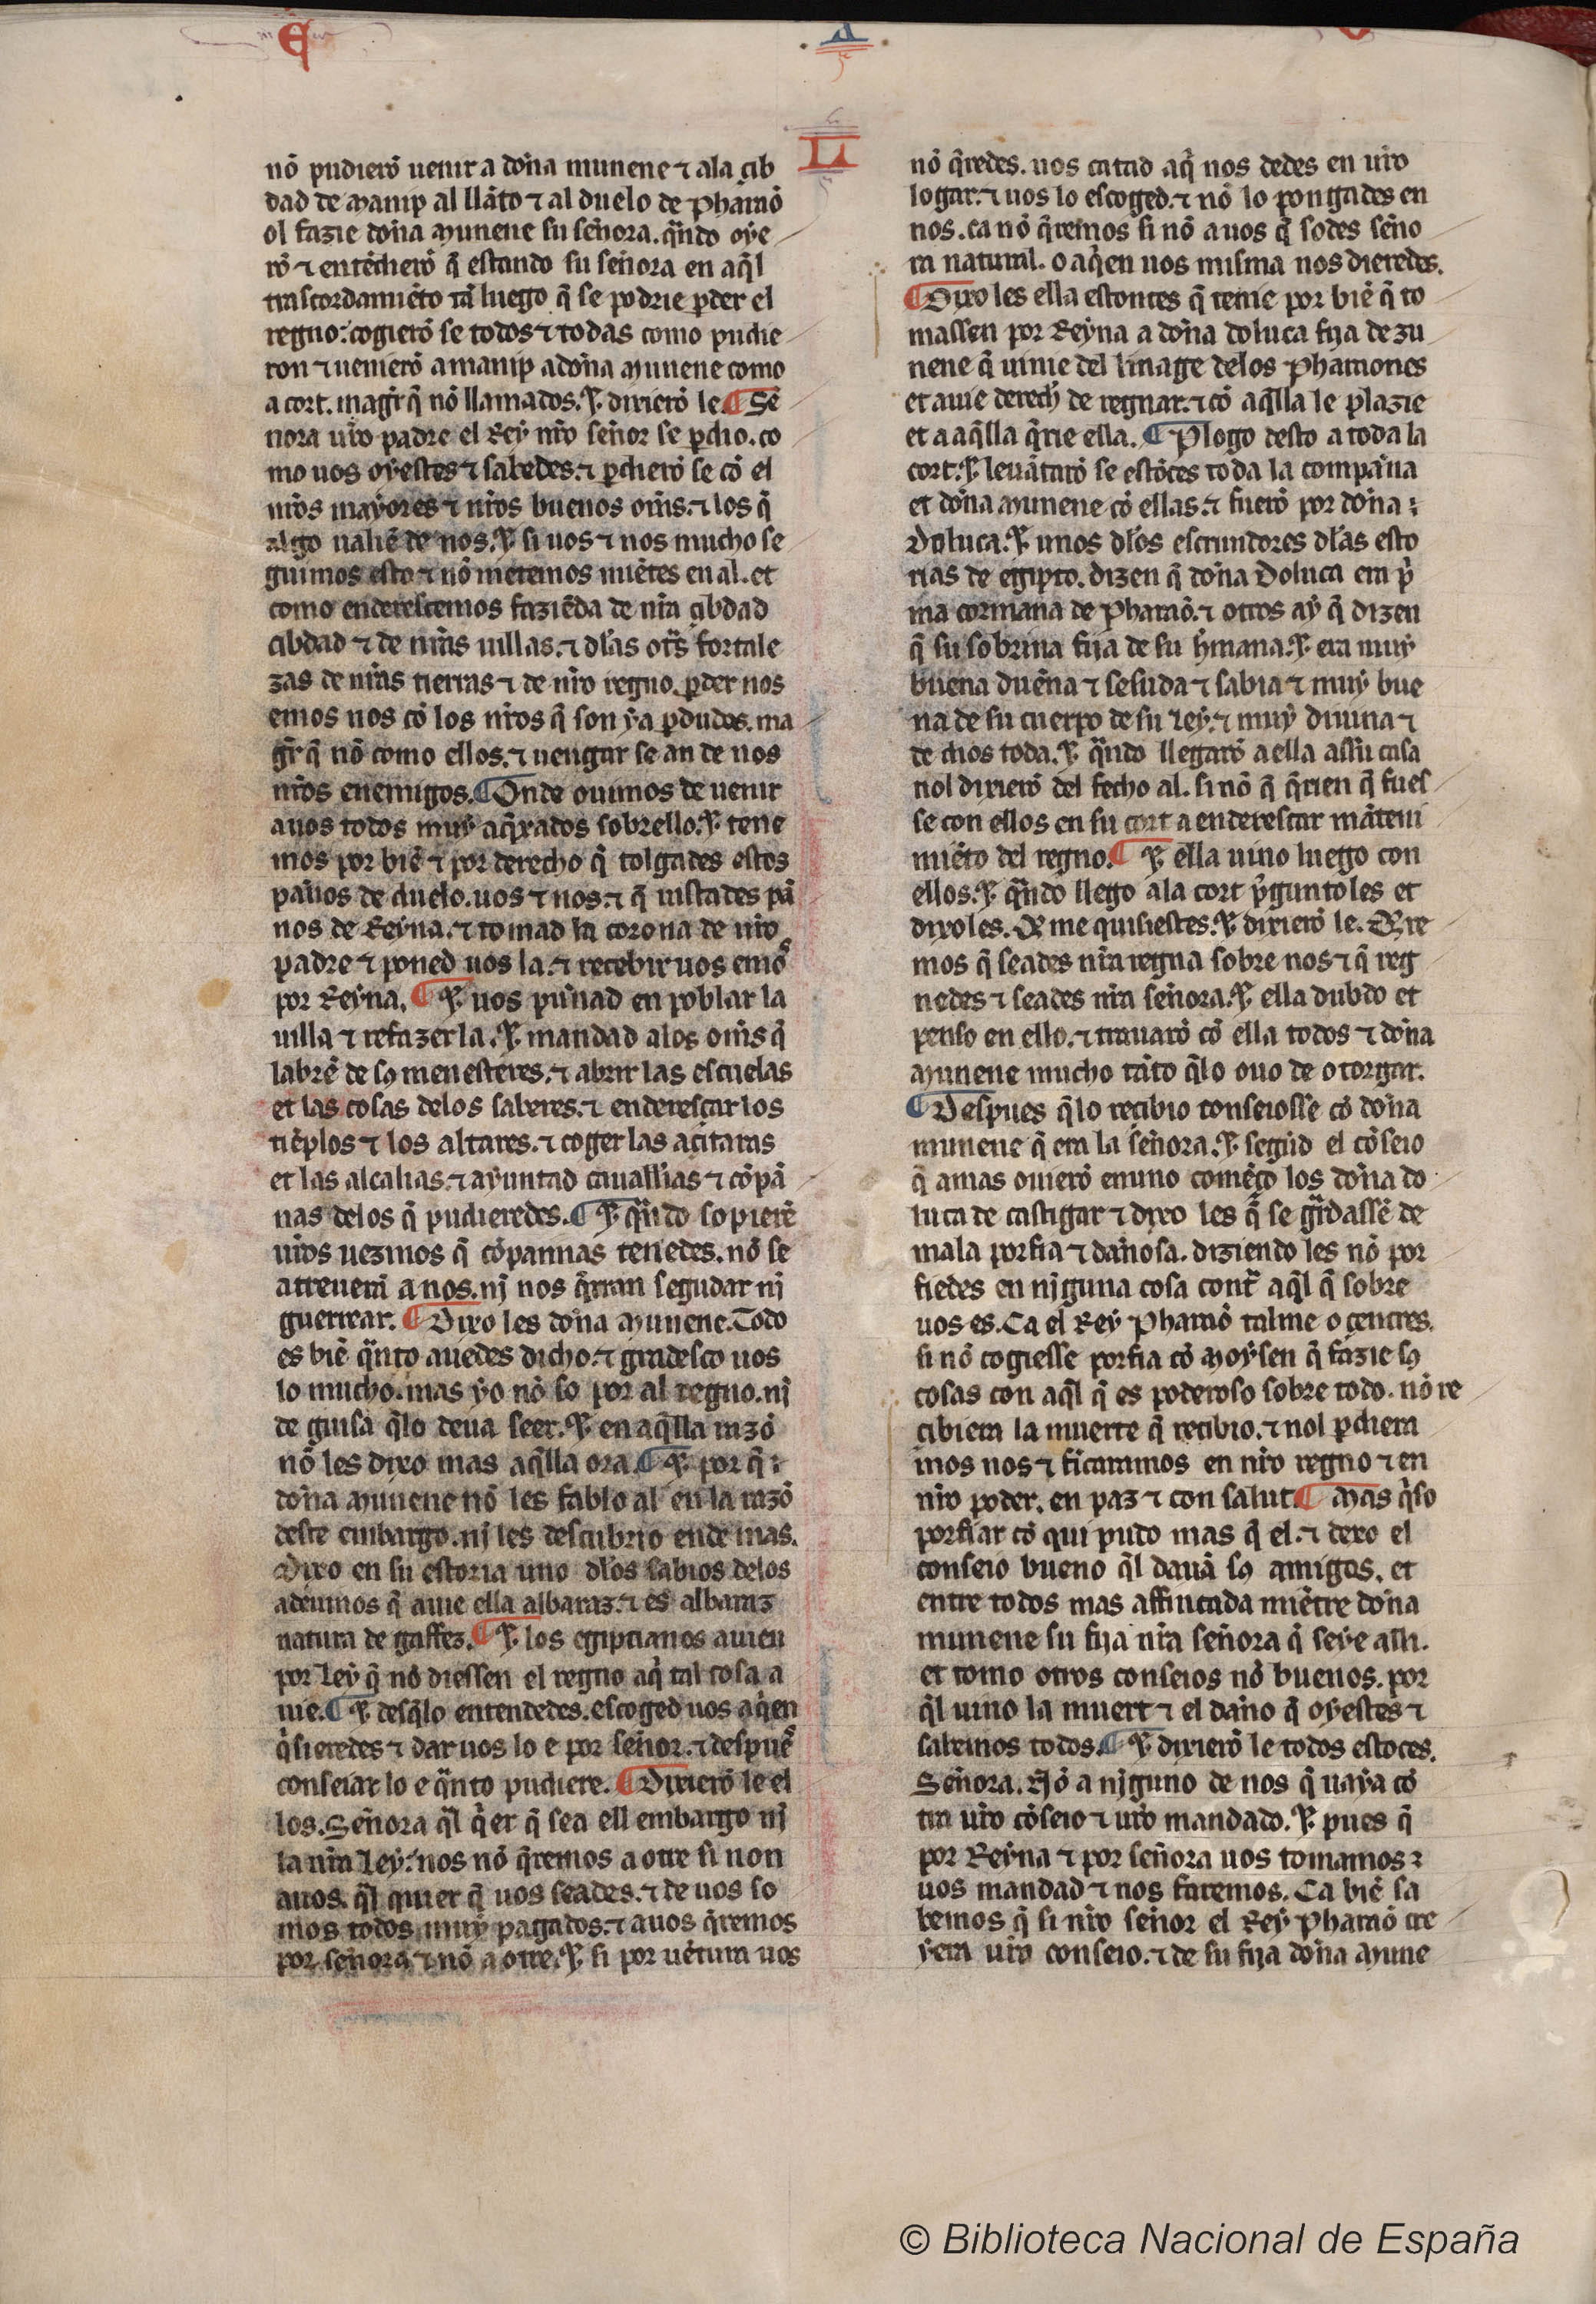 E
A
L
nõ pudierõ uenir a doña munene ⁊ ala çib
dad de manip al llãto ⁊ al duelo de pharaõ
ol fazie doña munene su señora. q̃ndo oye
rõ ⁊ entẽdierõ q̃ estando su señora en aq̃l
trascordamiẽto tã luego q̃ se podrie ꝑder el
regno: cogierõ se todos ⁊ todas como pudie
ron ⁊ uenierõ a manip a doña munene como
a cort. magr̃ q̃ nõ llamados. ⁊ dixierõ le. ¶ Se
ñora ur̃o padre el Rey nr̃o señor se ꝑdio. co
mo uos oyestes ⁊ sabedes. ⁊ ꝑdierõ se cõ el
nr̃os mayores ⁊ nr̃os buenos om̃s. ⁊ los q̃
algo ualiẽ de nos. ⁊ si uos ⁊ nos mucho se
guimos esto ⁊ nõ metemos miẽtes en al. et
como enderescemos faziẽda de nr̃a çibdad
çibdad ⁊ de nr̃as uillas. ⁊ dl̃as otr̃s fortale
zas de nr̃as tierras ⁊ de nr̃o regno. ꝑder nos
emos nos cõ los nr̃os q̃ son ya ꝑdudos. ma
gr̃ q̃ nõ como ellos. ⁊ uengar se an de nos
nr̃os enemigos. ¶ Onde ouimos de uenir
auos todos muy aq̃xados sobrello. ⁊ tene
mos por biẽ ⁊ por derecho q̃ tolgades estos
paños de duelo. uos ⁊ nos. ⁊ q̃ uistades pã
nos de Reyna. ⁊ tomad la corona de ur̃o
padre ⁊ poned uos la. ⁊ recebir uos emõs
por Reyna. ¶ ⁊ uos puñad en poblar la
uilla ⁊ refazer la. ⁊ mandad alos om̃s q̃
labrẽ de sꝯ menesteres. ⁊ abrir las escuelas
et las cosas delos saberes. ⁊ enderesçar los
tẽplos ⁊ los altares. ⁊ coger las açitaras
et las alcalias. ⁊ ayuntad cauall̃ias ⁊ cõpã
nas delos q̃ pudieredes. ¶ ⁊ q̃ndo sopierẽ
ur̃os uezinos q̃ cõpannas tenedes. nõ se
atreuerã a nos. nj nos q̃rran segudar nj
guerrear. ¶ Dixo les doña munene. Todo
es biẽ q̃nto auedes dicho. ⁊ gradesco uos
lo mucho. mas yo nõ so por al regno. nj
de guisa q̃lo deua seer. ⁊ en aq̃lla razõ
nõ les dixo mas aq̃lla ora. ¶ ⁊ por q̃
doña munene nõ les fablo al en la razõ
deste embargo. nj les descubrio ende mas.
Dixo en su estoria uno dl̃os sabios delos
adeuinos q̃ auie ella albaraz. ⁊ es albaraz
natura de gaffez. ¶ ⁊ los egiptianos auien
por ley q̃ nõ diessen el regno aq̃ tal cosa a
uie. ¶ ⁊ desq̃lo entendedes. escoged uos aq̃en
q̃sieredes ⁊ dar uos lo e por señor. ⁊ despuẽs
conseiar lo e q̃nto pudiere. ¶ Dixierõ le el
los. Señora q̃l q̃er q̃ sea ell embargo nj
la nr̃a ley: nos nõ q̃remos a otre si non
auos. q̃l quier q̃ uos seades. ⁊ de uos so
mos todos muy pagados. ⁊ auos q̃remos
por señora ⁊ nõ a otre. ⁊ si por uẽtura uos
nõ q̃redes. uos catad aq̃ nos dedes en ur̃o
logar. ⁊ uos lo escoged. ⁊ nõ lo pongades en
nos. ca nõ q̃remos si nõ a uos q̃ sodes seño
ra natural. o aq̃en uos misma nos dieredes.
¶ Dixo les ella estonces q̃ tenie por biẽ q̃ to
massen por Reyna a doña doluca fija de zu
nene q̃ uinie del linage delos pharaones
et auie derech̃ de regnar. ⁊ cõ aq̃lla le plazie
et a aq̃lla q̃rie ella. ¶ Plogo desto a toda la
cort. ⁊ leuãtarõ se estõces toda la compaña
et doña munene cõ ellas. ⁊ fuerõ por doña
Doluca. ⁊ unos dl̃os escriuidores dl̃as esto
rias de egipto. dizen q̃ doña Doluca era p̃
ma cormana de pharaõ. ⁊ otros ay q̃ dizen
q̃ su sobrina fija de su h̃mana. ⁊ era muy
buena dueña ⁊ sesuda ⁊ sabia ⁊ muy bue
na de su cuerpo de su ley. ⁊ muy diuina ⁊
de dios toda. ⁊ q̃ndo llegarõ a ella assu casa
nol dixierõ del fecho al. si nõ q̃ q̃rien q̃ fues
se con ellos en su cort a enderesçar mãteni
miẽto del regno. ¶ ⁊ ella uino luego con
ellos. ⁊ q̃ndo llego ala cort p̃guntoles et
dixoles. Q̃ me quisiestes. ⁊ dixierõ le. Q̃re
mos q̃ seades nr̃a regna sobre nos ⁊ q̃ reg
nedes ⁊ seades nr̃a señora. ⁊ ella dubdo et
penso en ello. ⁊ trauarõ cõ ella todos ⁊ doña
munene mucho tãto q̃lo ouo de otorgar.
¶ Despues q̃lo recibio conseiosse cõ doña
munene q̃ era la señora. ⁊ segũd el cõseio
q̃ amas ouierõ en uno comẽço los doña do
luca de castigar ⁊ dixo les q̃ se gr̃dassẽ de
mala porfia ⁊ dañosa. diziendo les nõ por
fiedes en njguna cosa contr̃ aq̃l q̃ sobre
uos es. Ca el Rey pharaõ talme o çentres.
si nõ cogiesse porfia cõ moysen q̃ fazie sꝯ
cosas con aq̃l q̃ es poderoso sobre todo. nõ re
çibiera la muerte q̃ recibio. ⁊ nol ꝑdiera
mos nos ⁊ ficaramos en nr̃o regno ⁊ en
nr̃o poder. en paz ⁊ con salut. ¶ Mas q̃so
porfiar cõ qui pudo mas q̃ el. ⁊ dexo el
conseio bueno q̃l dauã sꝯ amigos. et
entre todos mas affincada miẽtre doña
munene su fija nr̃a señora q̃ seye alli.
et tomo otros conseios nõ buenos. por
q̃l uino la muert ⁊ el daño q̃ oyestes ⁊
sabemos todos. ¶ ⁊ dixierõ le todos estoces.
Señora. Nõ a njguno de nos q̃ uaya cõ
tra ur̃o cõseio ⁊ ur̃o mandado. ⁊ pues q̃
por Reyna ⁊ por señora uos tomamos:
uos mandad ⁊ nos faremos. Ca biẽ sa
bemos q̃ si nr̃o señor el Rey pharaõ cre
yera ur̃o conseio. ⁊ de su fija doña mune
© Biblioteca Nacional de España